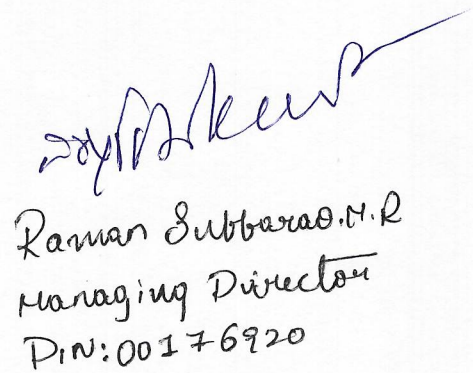 Raman Subbarao.M.R
Managing Director
DIN:00176920